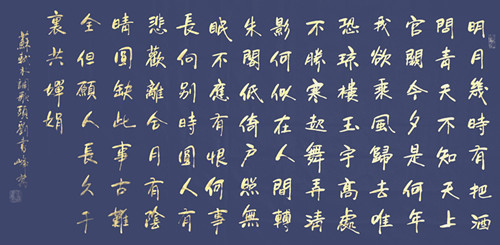 明月幾時有把酒
問青天不知天上
宮闕今夕是何年
我欲乘風歸去唯
恐瓊樓玉宇高處
不勝寒起舞弄清
影何似在人間轉
朱閣低倚戶照無
眠不應有恨何事
長向別時圓人有
悲歡離合月有陰
晴圓缺此事古難
全但願人長久千
裏共嬋娟
蘇軾水調歌頭